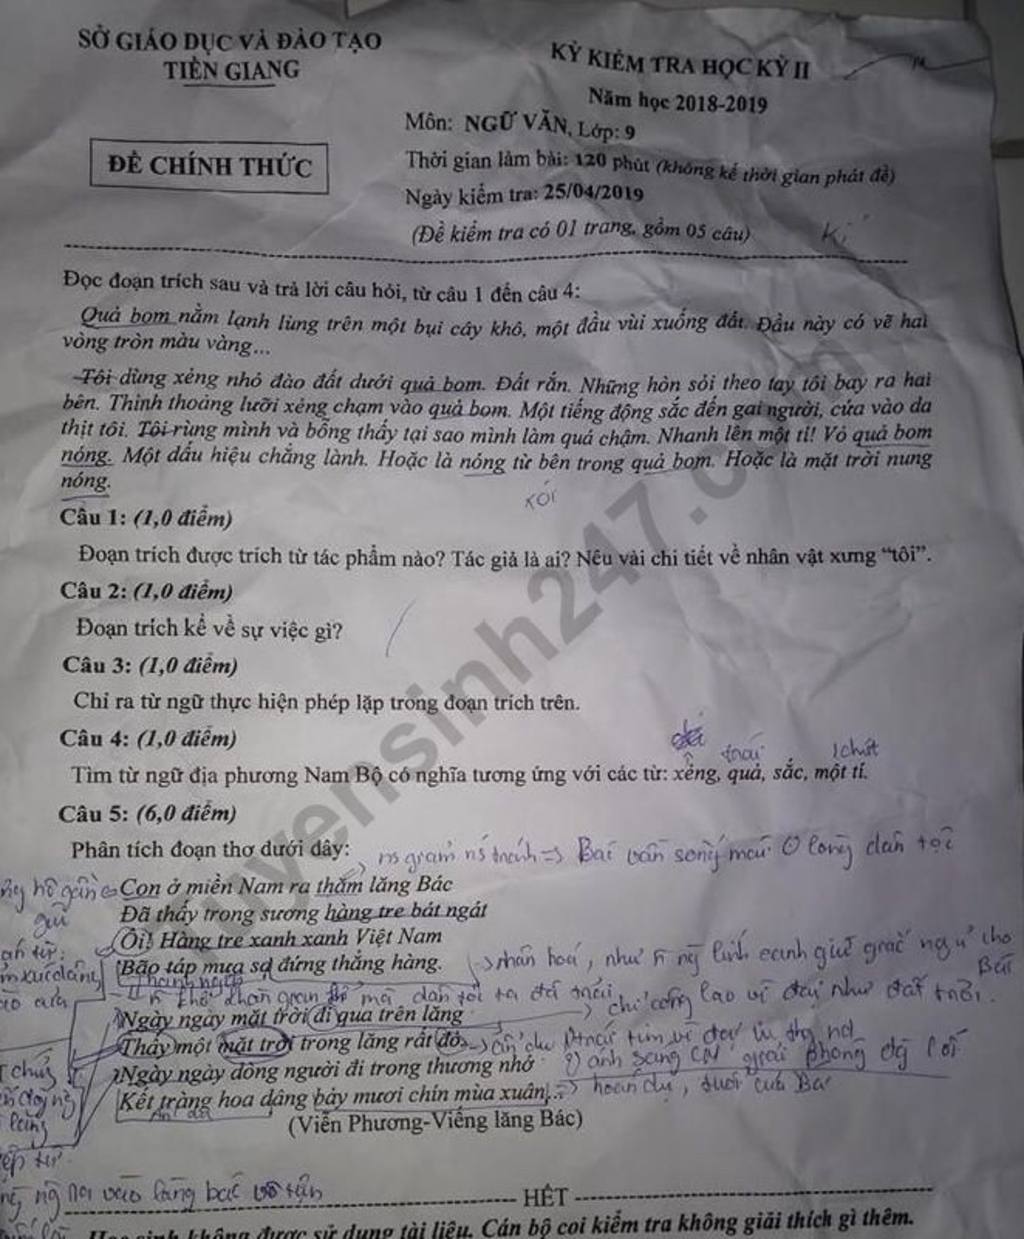 SỞ GIÁO DỤC VÀ ĐÀO TẠO
TIỀN GIANG
KỲ KIỂM TRA HỌC KỲ II
Năm học 2018-2019
Môn: NGỮ VĂN, Lớp: 9
ĐỀ CHÍNH THỨC
Thời gian làm bài: 120 phút (không kể thời gian phát đề)
Ngày kiểm tra: 25/04/2019
(Đề kiểm tra có 01 trang, gồm 05 câu)
Đọc đoạn trích sau và trả lời câu hỏi, từ câu 1 đến câu 4:
Quả bom nằm lạnh lùng trên một bụi cây khô, một đầu vùi xuống đất. Đầu này có vẽ hai
vòng tròn màu vàng...
Tôi dùng xẻng nhỏ đào đất dưới quả bom. Đất rắn. Những hòn sỏi theo tay tôi bay ra hai
bên. Thỉnh thoảng lưỡi xẻng chạm vào quả bom. Một tiếng động sắc đến gai người, cứa vào da
thịt tôi. Tôi rùng mình và bỗng thấy tại sao mình làm quá chậm. Nhanh lên một tí! Vỏ quả bom
nóng. Một dấu hiệu chẳng lành. Hoặc là nóng từ bên trong quả bom. Hoặc là mặt trời nung
nóng.
xới
Câu 1: (1,0 điểm)
Đoạn trích được trích từ tác phẩm nào? Tác giả là ai? Nêu vài chi tiết về nhân vật xưng “tôi”.
Câu 2: (1,0 điểm)
Đoạn trích kể về sự việc gì?
Câu 3: (1,0 điểm)
Chỉ ra từ ngữ thực hiện phép lặp trong đoạn trích trên.
Câu 4: (1,0 điểm)
trái 1 chút
Tìm từ ngữ địa phương Nam Bộ có nghĩa tương ứng với các từ: xẻng, quả, sắc, một tí.
Câu 5: (6,0 điểm)
Phân tích đoạn thơ dưới đây:
Bác vẫn sống mãi lòng dân tộc
Con ở miền Nam ra thăm lăng Bác
Đã thấy trong sương hàng tre bát ngát
Ôi! Hàng tre xanh xanh Việt Nam
Bão táp mưa sa đứng thẳng hàng.
nhân hoá, như lính canh giữ giấc ngủ cho Bác
Ngày ngày mặt trời đi qua trên lăng
công lao vĩ đại như đất trời.
Thấy một mặt trời trong lăng rất đỏ.
Ngày ngày dòng người đi trong thương nhớ
Kết tràng hoa dâng bảy mươi chín mùa xuân...
hoán dụ, tuổi của Bác
(Viễn Phương-Viếng lăng Bác)
vào lăng bác vô tận
HẾT
Học sinh không được sử dụng tài liệu. Cán bộ coi kiểm tra không giải thích gì thêm.
tuyensinh247.com